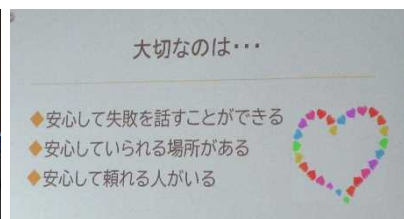 大切なのは･･･
◆安心して失敗を話すことができる
◆安心していられる場所がある
◆安心して頼れる人がいる